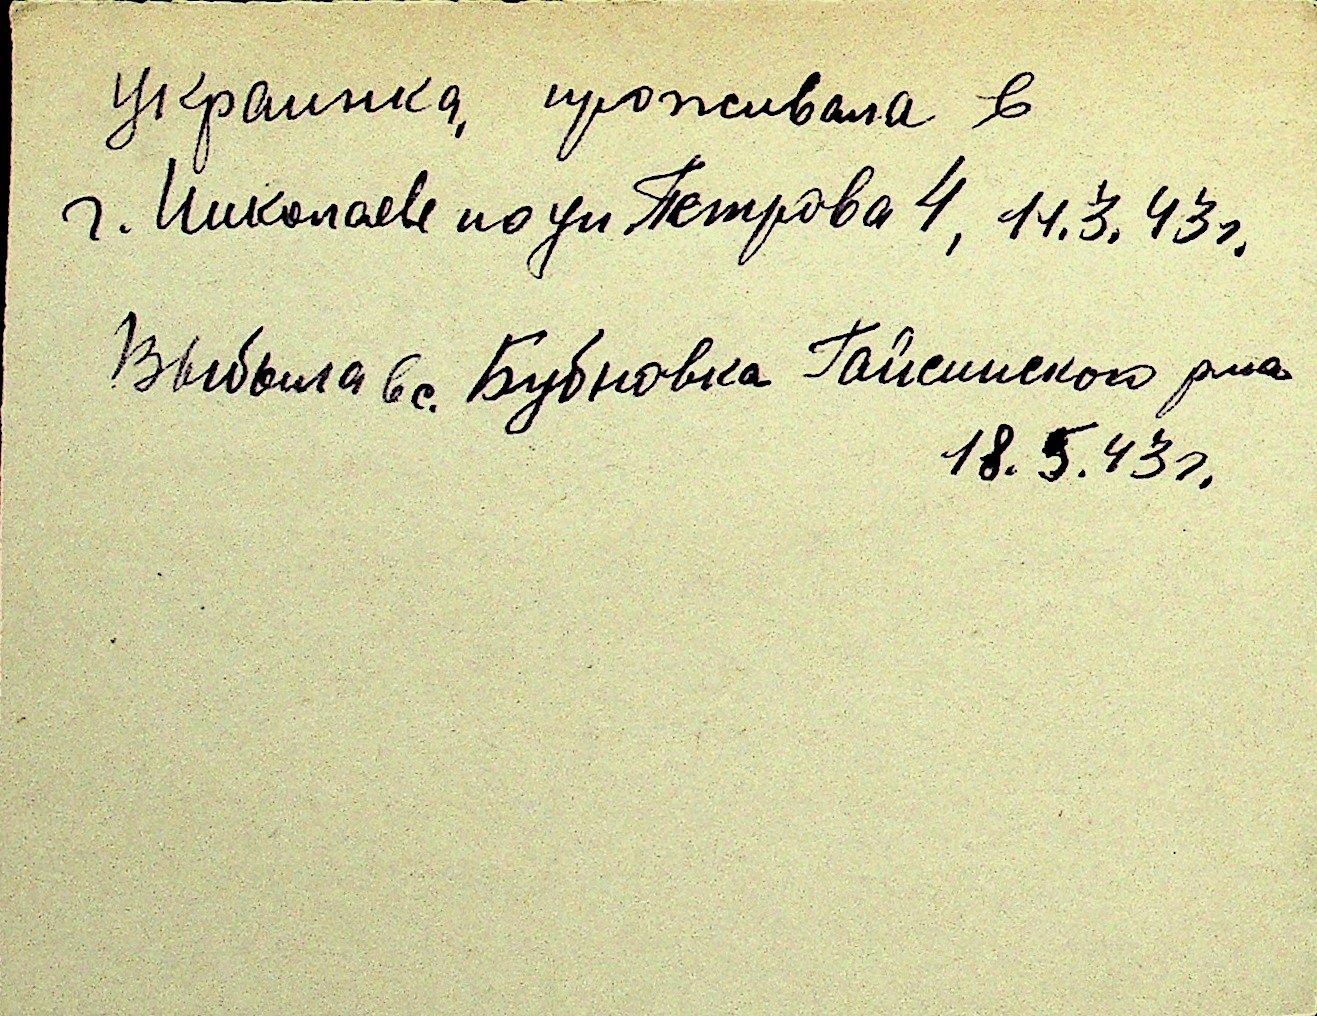 Украинка, проживала в
г. Николаеве по ул Петрова 4, 11.3.43г.
Выбыла в с. Бубновка Гайсинского р-на
18.5.43г.